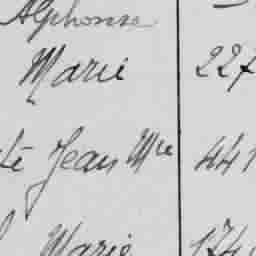 Alphonse
Marie 227
té Jean Mie 441
Marie 174